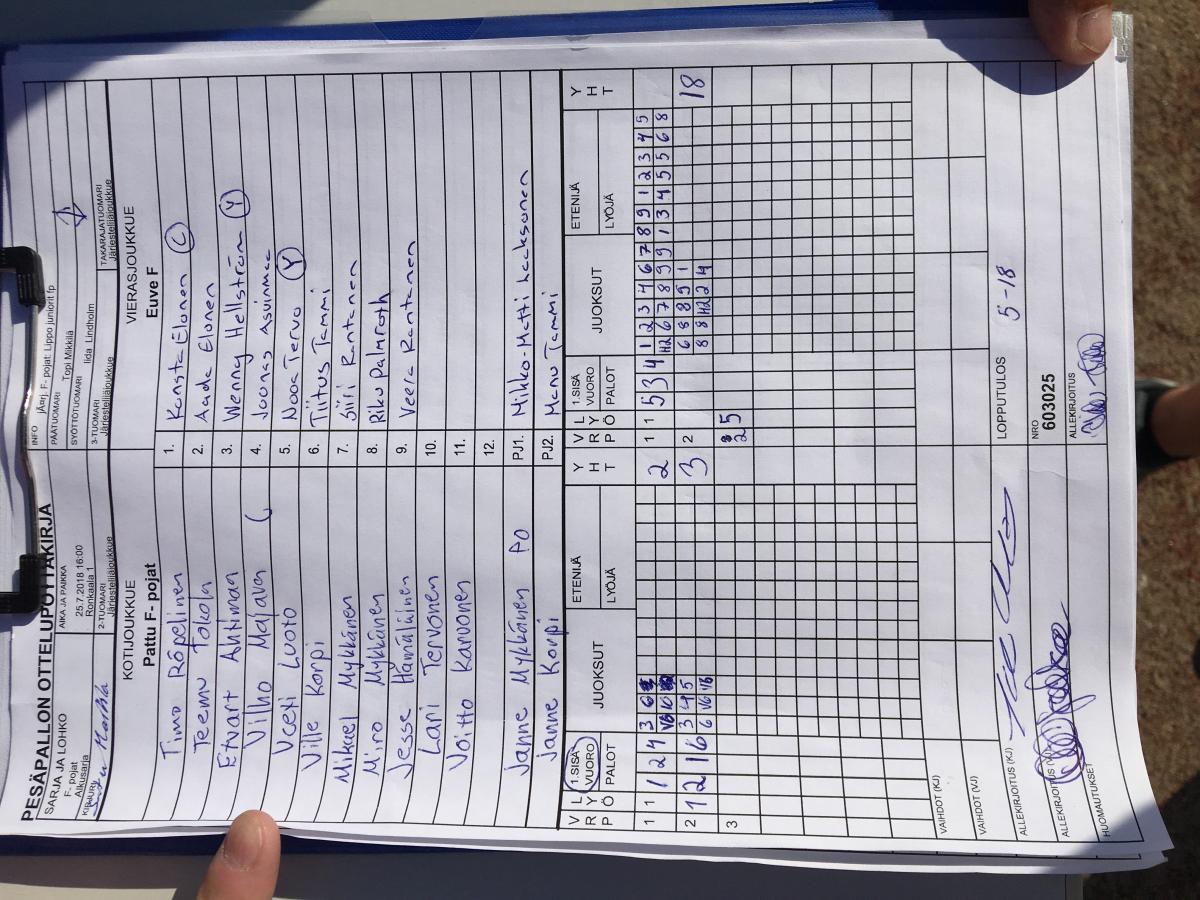 PESÄPALLON OTTELUPÖYTÄKIRJA
SARJA JA LOHKO
F- pojat
Alkusarja
AIKA JA PAIKKA
25.7.2018 16:00
Ronkaala 1
INFO
jÄ¤rj. F- pojat: Lippo juniorit fp
PÄÄTUOMARI
Topi Mikkilä
SYÖTTÖTUOMARI
Iida Lindholm
KIRJURI
2-TUOMARI
Järjestelijäjoukkue
3-TUOMARI
Järjestelijäjoukkue
TAKARAJATUOMARI
Järjestelijäjoukkue
KOTIJOUKKUE
Pattu F- pojat
VIERASJOUKKUE
Euve F
Timo Räpelinen 1. Konsta Elonen C
Teemu Tokola 2. Aada Elonen
Etvart Ahtinan 3. Wenny Hellström Y
Vilho Majava ( 4. Joonas Asunmaa
Veeti Luoto 5. Nooa Tervo Y
Ville Korpi 6. Tiitus Tammi
Mikael Mykkänen 7. Jiiri Rantanen
Miro Mykkänen 8. Riku Palmroth
Jesse Hämäläinen 9. Veera Rantanen
Lari Tervonen 10.
Voitto Karvonen 11.
12.
Janne Mykkänen PO PJ1. Mikko-Matti Laaksonen
Janne Korpi PJ2. Manu Tammi
V R P L Y Ö 1.SISÄ VUORO PALOT JUOKSUT ETENIJÄ LYÖJÄ Y H T V R P L Y Ö 1.SISÄ VUORO PALOT JUOKSUT ETENIJÄ LYÖJÄ Y H T
1 1 1 2 4 3 6 2 1 1 5 3 4 1 2 3 4 6 7 8 9 1 2 3 4 5
V6 H2 6 7 8 9 9 1 3 4 5 5 6 8
2 1 2 1 6 3 4 5 3 2 6 8 8 9 1 18
6 V6 V6 8 8 H2 2 4
3 25
VAIHDOT (KJ)
VAIHDOT (VJ)
ALLEKIRJOITUS (KJ)
LOPPUTULOS 5-18
ALLEKIRJOITUS
NRO
603025
HUOMAUTUKSET
ALLEKIRJOITUS